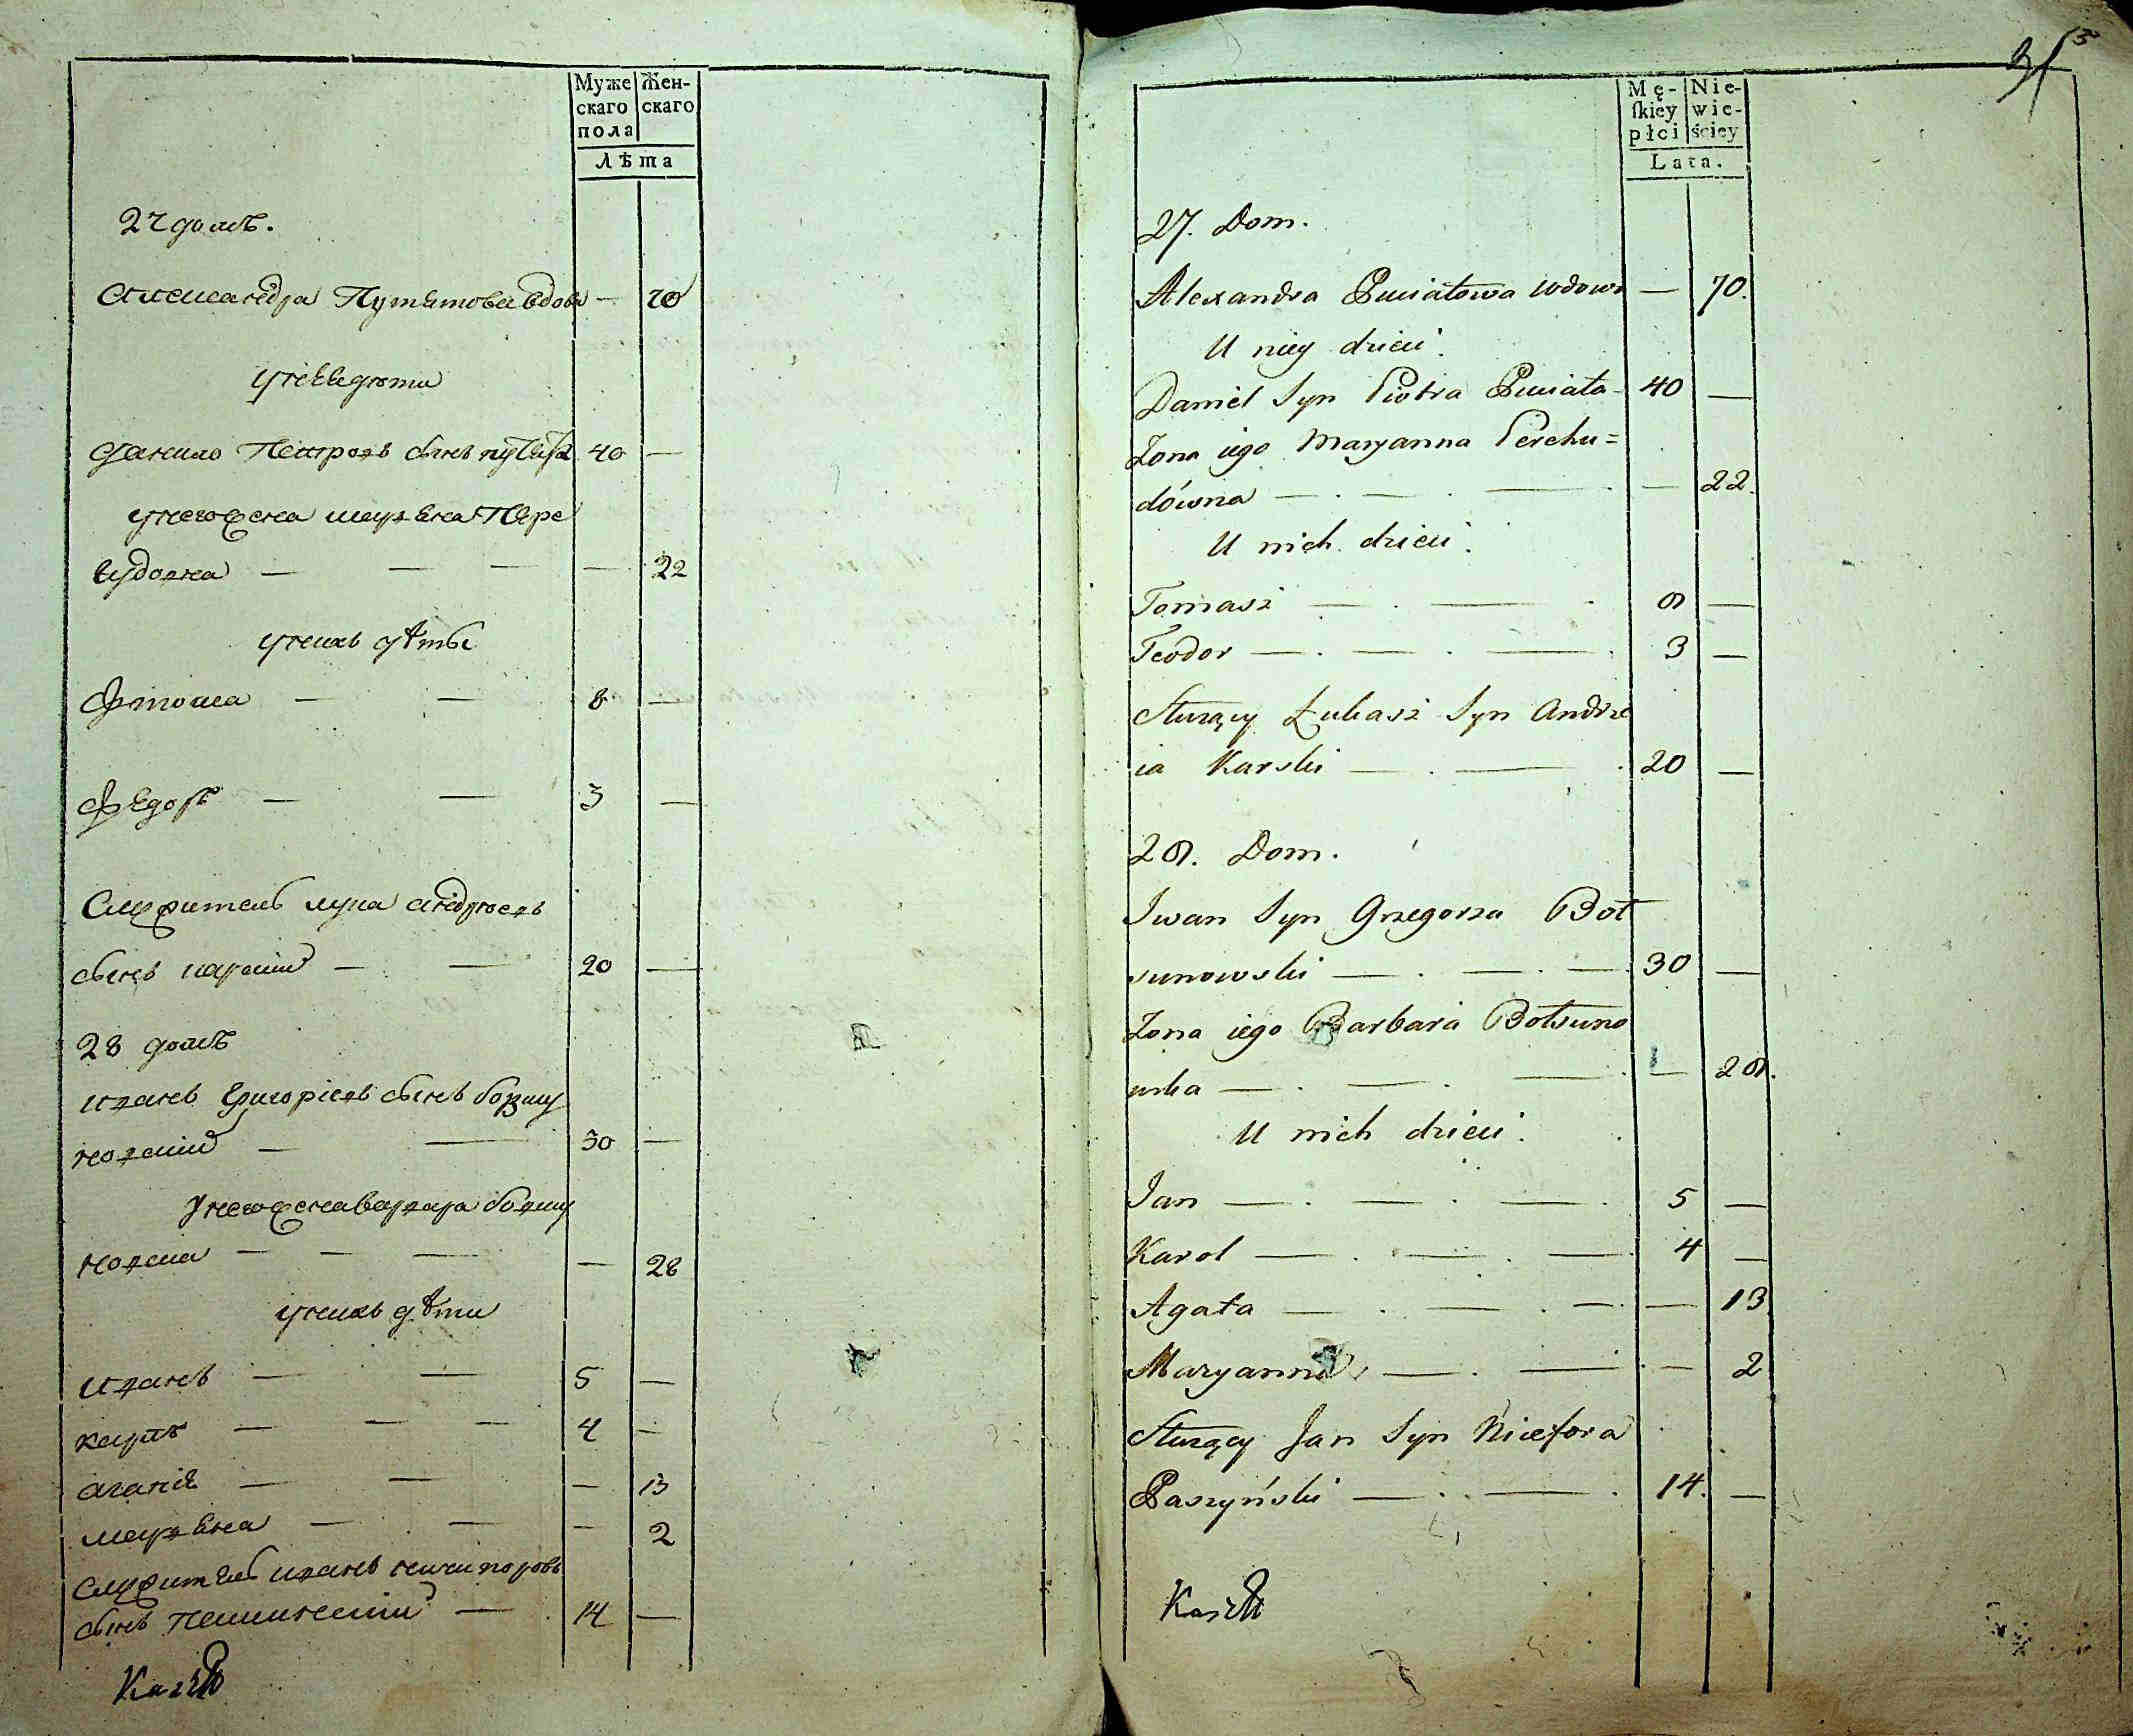 Муже
скаго
пола
Жен-
скаго
Лѣта
27 домъ.
Александра Путятова вдова — 70
у нее дети
Данило Петровъ сынъ путята 40 —
у него жена марьяна Пере
худовна — — — — 22
у нихъ дѣты
Фтома — — 8 —
Федоръ — — 3 —
Служитель лука андреевъ
сынъ карский — — 20 —
28 домъ
иванъ Григоріевъ сынъ болцу
новский — — 30 —
у него жена варвара болцу
новска — — — — 28
у нихъ дѣти
иванъ — — 5 —
карлъ — — — 4 —
агапія — — — 13
марьяна — — — 2
Служитель иванъ ничипоровъ
сынъ — 14 —
5
Mę-
skiey
płci
Nie-
wie-
ściey
Lata.
27. Dom.
Alexandra Puciatowa wdowa — 70.
U niey dzieci.
Daniel Syn Piotra Puciata - 40 —
Zona iego Maryanna Perchu=
dówna — . — . — . — 22.
U nich dzieci.
Tomasz — . — . 8 —
Teodor — . — . — . 3 —
Służący Łukasz Syn Andrze
ia Karski — . — . 20 —
28. Dom.
Iwan Syn Grzegorza Boł
sunowski — . — . — . 30 —
Zona iego Barbara Bołsuno
wska — . — . — . — 28.
U nich dzieci.
Jan — . — . — . 5 —
Karol — . — . — . 4 —
Agata — . — . — . — 13
Maryanna — . — . — 2
Służący Jan Syn Nicefora
Paszyński — . . — . 14. —